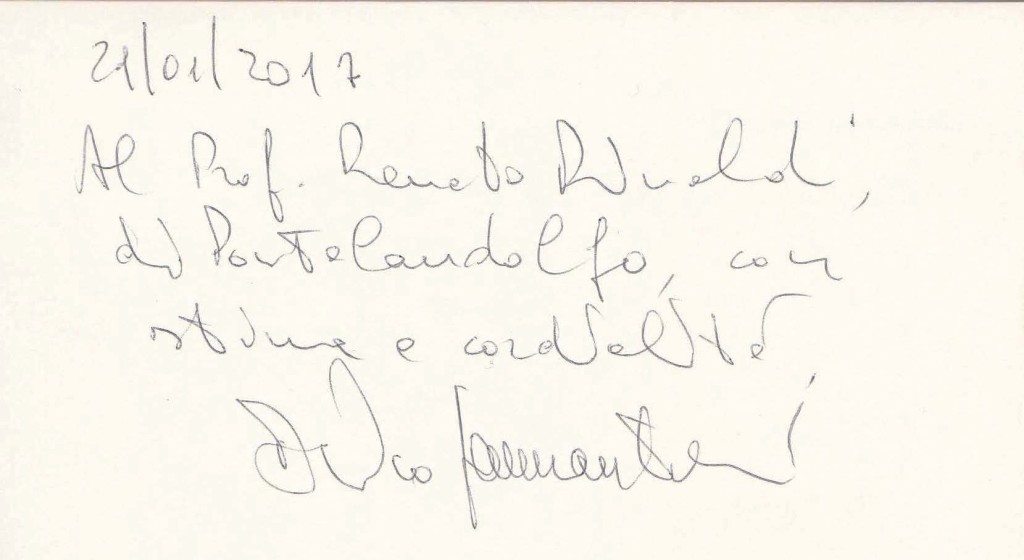 21/01/2017
Al Prof. Renato Rinaldi,
di Pontelandolfo, con
stima e cordialità,